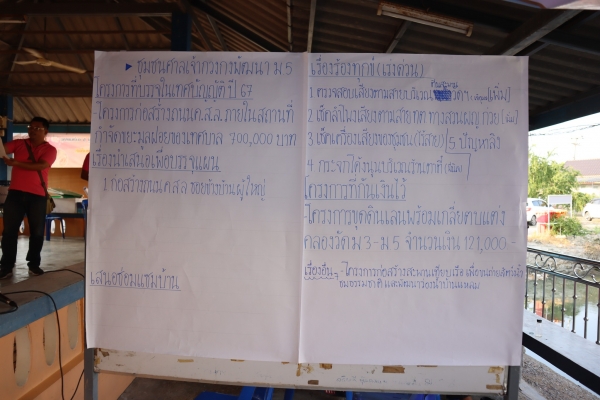 ▸ ชุมชนศาลเจ้ากวงกงพัฒนา ม.5
โครงการที่บรรจุในเทศบัญญัติ ปี 67
โครงการก่อสร้างถนนค.ส.ล.ภายในสถานที่
กำจัดขยะมูลฝอยของเทศบาล 700,000 บาท
เรื่องนำเสนอเพื่อบรรจุแผน
1 ก่อสร้างถนนค.ส.ล ซอยข้างบ้านผู้ใหญ่
เสนอซ่อมแซมบ้าน
เรื่องร้องทุกข์ (เร่งด่วน)
1 ตรวจสอบเสียงตามสายบริเวณ (เพิ่ม)
2 เช็คลำโพงเสียงตามสาย
3 เช็คเครื่องเสียงของชุมชน (ไร้สาย)
4 กระจกโค้งมุมบริเวณร้านทาดี
โครงการที่กันเงินไว้
-โครงการขุดดินเลนพร้อมเกลี่ยตบแต่ง
คลองวัด ม 3-ม 5 จำนวนเงิน 121,000.-
เรื่องอื่นๆ -โครงการก่อสร้างสะพานเทียบเรือ
ชมธรรมชาติ และพัฒนาร่องน้ำบ้านแหลม